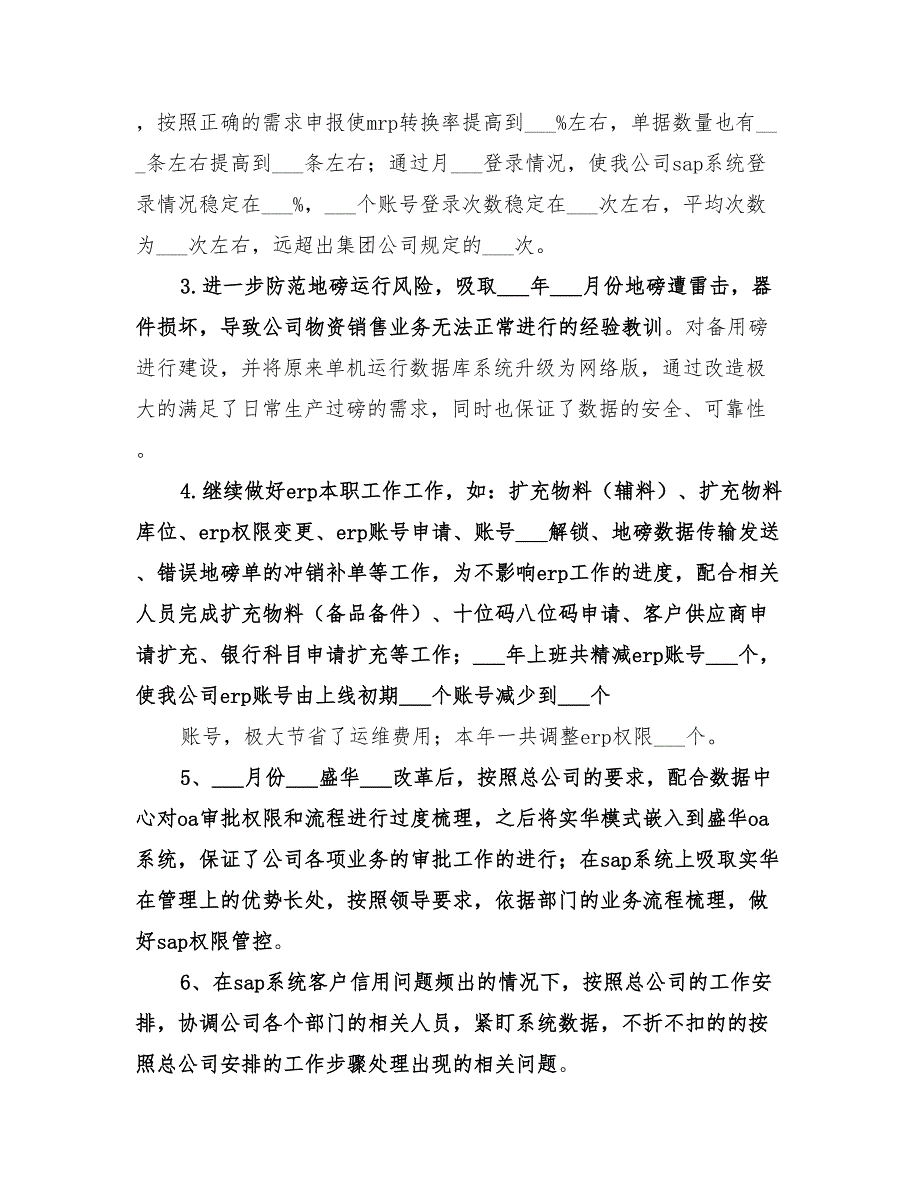 ，按照正确的需求申报使mrp转换率提高到___%左右，单据数量也有__
_条左右提高到___条左右；通过月___登录情况，使我公司sap系统登
录情况稳定在___%，___个账号登录次数稳定在___次左右，平均次数
为___次左右，远超出集团公司规定的___次。
3.进一步防范地磅运行风险，吸取___年___月份地磅遭雷击，器
件损坏，导致公司物资销售业务无法正常进行的经验教训。对备用磅
进行建设，并将原来单机运行数据库系统升级为网络版，通过改造极
大的满足了日常生产过磅的需求，同时也保证了数据的安全、可靠性
。
4.继续做好erp本职工作工作，如：扩充物料（辅料）、扩充物料
库位、erp权限变更、erp账号申请、账号___解锁、地磅数据传输发送
、错误地磅单的冲销补单等工作，为不影响erp工作的进度，配合相关
人员完成扩充物料（备品备件）、十位码八位码申请、客户供应商申
请扩充、银行科目申请扩充等工作；___年上班共精减erp账号___个，
使我公司erp账号由上线初期___个账号减少到___个
账号，极大节省了运维费用；本年一共调整erp权限___个。
5、___月份___盛华___改革后，按照总公司的要求，配合数据中
心对oa审批权限和流程进行过度梳理，之后将实华模式嵌入到盛华oa
系统，保证了公司各项业务的审批工作的进行；在sap系统上吸取实华
在管理上的优势长处，按照领导要求，依据部门的业务流程梳理，做
好sap权限管控。
6、在sap系统客户信用问题频出的情况下，按照总公司的工作安
排，协调公司各个部门的相关人员，紧盯系统数据，不折不扣的的按
照总公司安排的工作步骤处理出现的相关问题。